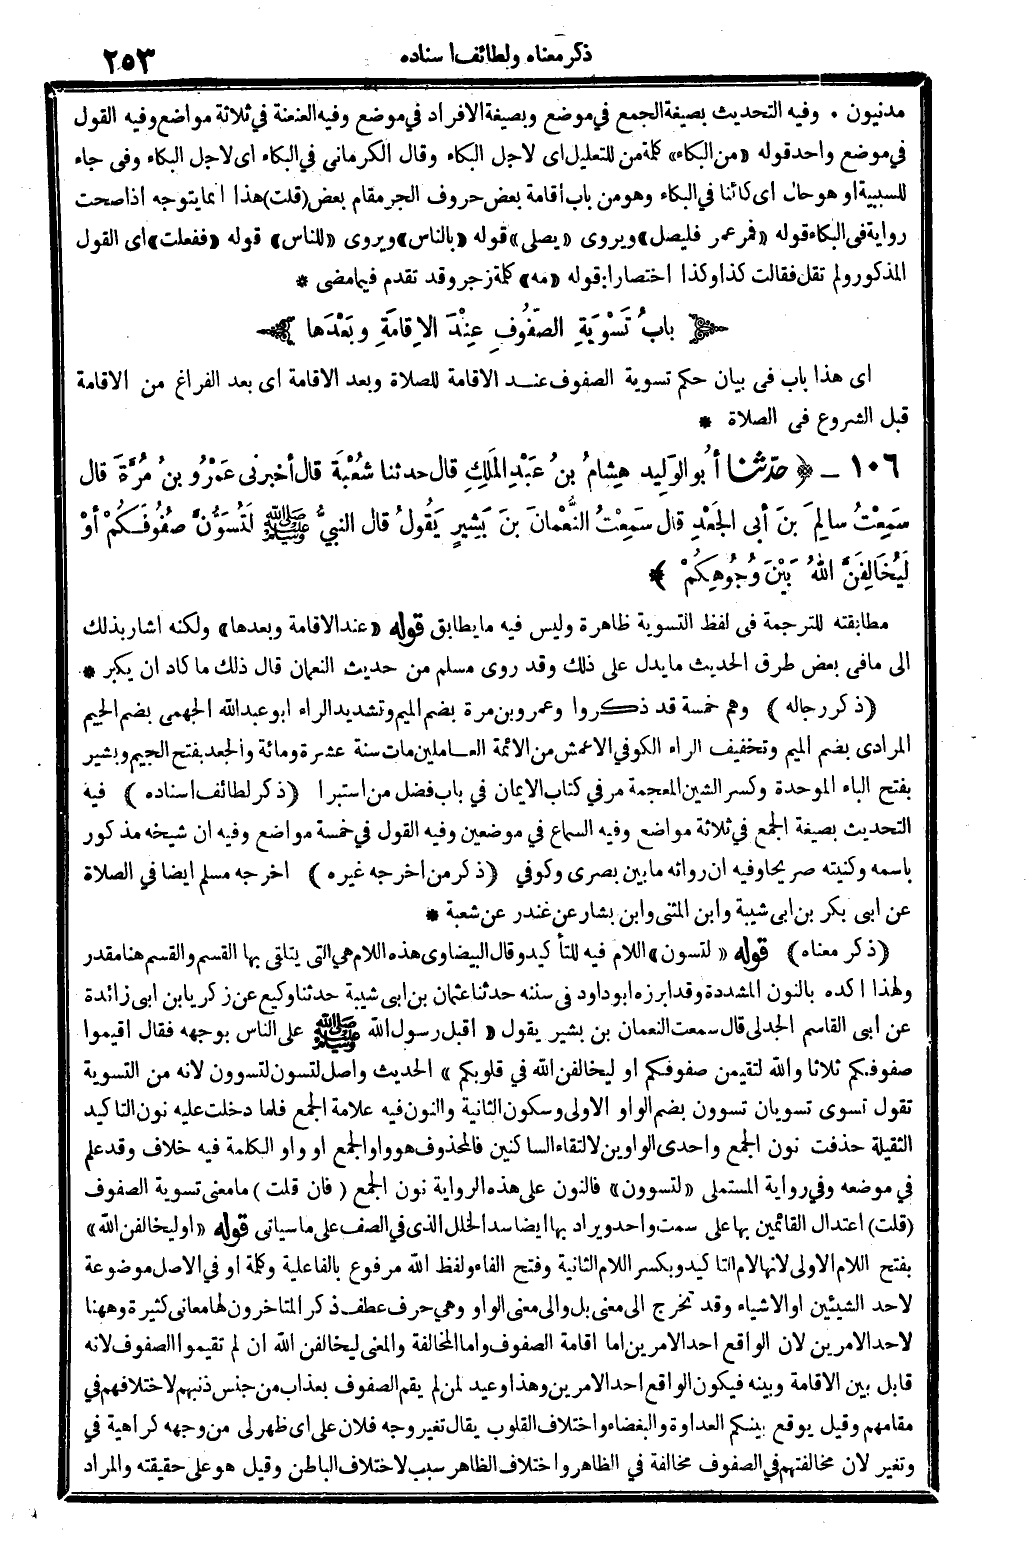 ذكر معناه ولطائف اسناده
٢٥٣
مدنيون . وفيه التحديث بصيغة الجمع في موضع وبصيغة الافراد في موضع وفيه العنعنة في ثلاثة مواضع وفيه القول
في موضع واحد قوله «من البكاء» كلمة من للتعليل اى لاجل البكاء وقال الكرمانى في البكاء اى لاجل البكاء وفى جاء
للسببية او هو حال اى كائنا في البكاء وهو من باب أقامة بعض حروف الجر مقام بعض (قلت) هذا انما يتوجه اذا صحت
رواية فى البكاء قوله «فمر عمر فليصل» ويروى «يصلى» قوله «بالناس» ويروى «للناس» قوله «ففعلت» اى القول
المذكور ولم تقل فقالت كذا وكذا اختصارا: قوله «مه» كلمة زجر وقد تقدم فيما مضى *
﴿ بابُ تَسْوِيَةِ الصُّفُوفِ عِنْدَ الاِقامَةِ وبَعْدَها ﴾
اى هذا باب فى بيان حكم تسوية الصفوف عند الاقامة للصلاة وبعد الاقامة اى بعد الفراغ من الاقامة
قبل الشروع فى الصلاة *
١٠٦ ـ ﴿ حدّثنا أبُو الوَلِيدِ هِشامُ بنُ عَبْدِ المَلِكِ قال حدثنا شُعْبَةُ قال أخبرنى عَمْرُو بنُ مُرَّةَ قال
سَمِعْتُ سالِمَ بنَ أبى الجَعْدِ قال سَمِعْتُ النُّعْمانَ بنَ بَشِيرٍ يَقُولُ قال النبيُّ ﷺ لَتُسَوُّنَّ صُفُوفَكُمْ أوْ
لَيُخَالِفَنَّ اللهُ بَيْنَ وُجُوهِكُمْ ﴾ *
مطابقته للترجمة فى لفظ التسوية ظاهرة وليس فيه ما يطابق قوله «عند الاقامة وبعدها» ولكنه اشار بذلك
الى مافى بعض طرق الحديث ما يدل على ذلك وقد روى مسلم من حديث النعمان قال ذلك ما كاد ان يكبر *
(ذكر رجاله) وهم خمسة قد ذكروا وعمرو بن مرة بضم الميم وتشديد الراء ابو عبدالله الجهمى بضم الجيم
المرادى بضم الميم وتخفيف الراء الكوفي الاعمش من الائمة العاملين مات سنة عشرة ومائة والجعد بفتح الجيم وبشير
بفتح الباء الموحدة وكسر الشين المعجمة مر في كتاب الايمان في باب فضل من استبرا (ذكر لطائف اسناده) فيه
التحديث بصيغة الجمع في ثلاثة مواضع وفيه السماع في موضعين وفيه القول في خمسة مواضع وفيه ان شيخه مذكور
باسمه وكنيته صريحا وفيه ان رواته ما بين بصرى وكوفي (ذكر من اخرجه غيره) اخرجه مسلم ايضا في الصلاة
عن ابى بكر بن ابى شيبة وابن المثنى وابن بشار عن غندر عن شعبة *
(ذكر معناه) قوله «لتسون» اللام فيه للتأكيد وقال البيضاوى هذه اللام هي التى يتلقى بها القسم والقسم هنا مقدر
ولهذا اكده بالنون المشددة وقد ابرزه ابو داود فى سننه حدثنا عثمان بن ابى شيبة حدثنا وكيع عن زكريا بن ابى زائدة
عن ابى القاسم الجدلى قال سمعت النعمان بن بشير يقول «اقبل رسول الله ﷺ على الناس بوجهه فقال اقيموا
صفوفكم ثلاثا والله لتقيمن صفوفكم او ليخالفن الله في قلوبكم» الحديث واصل لتسون لتسوون لانه من التسوية
تقول تسوى تسويان تسوون بضم الواو الاولى وسكون الثانية والنون فيه علامة الجمع فلما دخلت عليه نون التاكيد
الثقيلة حذفت نون الجمع واحدى الواوين لالتقاء الساكنين فالمحذوف هو واو الجمع او واو الكلمة فيه خلاف وقد علم
في موضعه وفي رواية المستملى «لتسوون» فالنون على هذه الرواية نون الجمع (فان قلت) ما معنى تسوية الصفوف
(قلت) اعتدال القائمين بها على سمت واحد ويراد بها ايضا سد الخلل الذى في الصف على ما سياتى قوله «او ليخالفن الله»
بفتح اللام الاولى لانها لام التاكيد وبكسر اللام الثانية وفتح الفاء ولفظ الله مرفوع بالفاعلية وكلمة او في الاصل موضوعة
لاحد الشيئين او الاشياء وقد تخرج الى معنى بل والى معنى الواو وهي حرف عطف ذكر المتاخرون لها معانى كثيرة وههنا
لاحد الامرين لان الواقع احد الامرين اما اقامة الصفوف واما المخالفة والمعنى ليخالفن الله ان لم تقيموا الصفوف لانه
قابل بين الاقامة وبينه فيكون الواقع احد الامرين وهذا وعيد لمن لم يقم الصفوف بعذاب من جنس ذنبهم لاختلافهم في
مقامهم وقيل يوقع بينكم العداوة والبغضاء واختلاف القلوب يقال تغير وجه فلان على اى ظهر لى من وجهه كراهية في
وتغير لان مخالفتهم في الصفوف مخالفة في الظاهر واختلاف الظاهر سبب لاختلاف الباطن وقيل هو على حقيقته والمراد